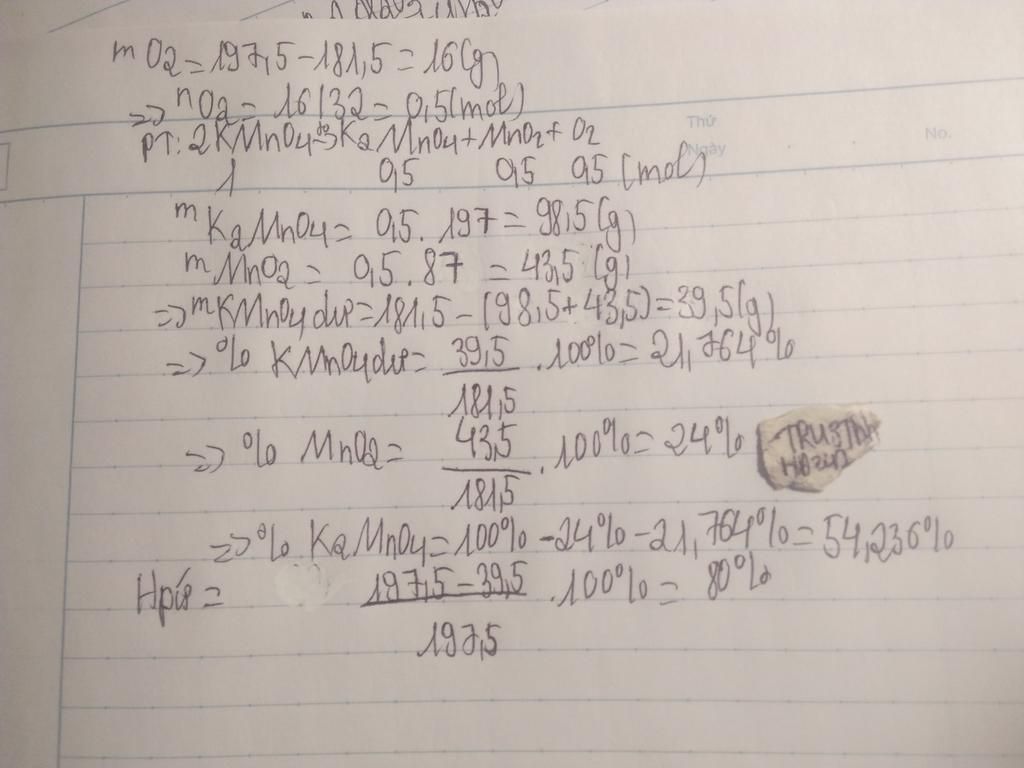 mO2=197,5-181,5=16(g)
=> nO2=16/32=0,5(mol)
Thứ
No.
PT: 2KMnO4-to>K2MnO4+MnO2+O2
Ngày
1 0,5 0,5 0,5 (mol)
mK2MnO4= 0,5.197=98,5(g)
mMnO2= 0,5.87 =43,5(g)
=> mKMnO4dư=181,5-(98,5+43,5)=39,5(g)
=> % KMnO4dư= 39,5/181,5 .100%=21,764%
=> % MnO2= 43,5/181,5 .100%=24%
=> % K2MnO4=100%-24%-21,764%=54,236%
Hpứ= 197,5-39,5/197,5 .100%= 80%